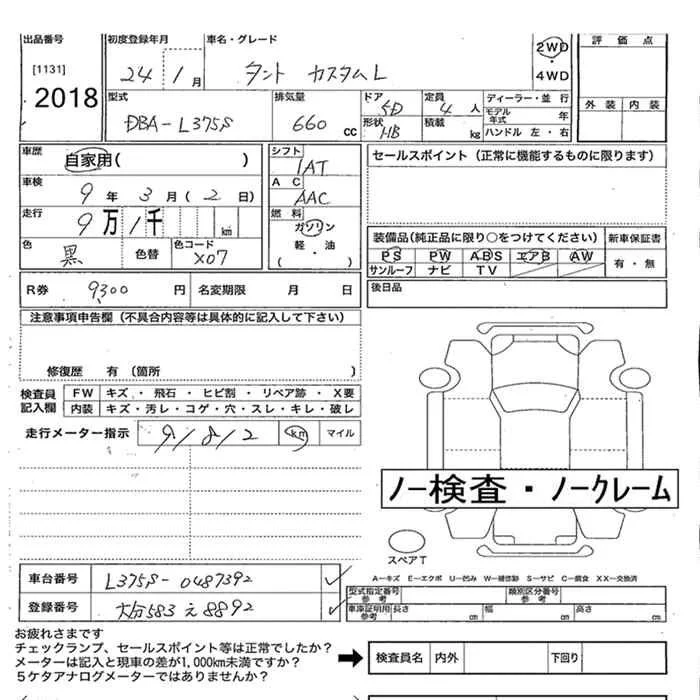 出品番号 初度登録年月 車名・グレード 評価点
[1131] 24 1月 タント カスタムL 2WD
2018 4WD
型式 排気量 ドア 定員 ディーラー・並行 外装 内装
DBA-L375S 660cc 5D 4人 モデル年式 年
形状 HB 積載 kg ハンドル 左・右
車歴 自家用( ) シフト 1AT セールスポイント(正常に機能するものに限ります)
車検 9年3月(2日) AC AAC
走行 9万1千 km 燃料 ガソリン
軽・油
( )
装備品(純正品に限り○をつけてください) 新車保証書
色 黒 色替 色コード X07 PS PW ABS エアB AW 有・無
サンルーフ ナビ TV
R券 9300円 名変期限 月 日 後日品
注意事項申告欄(不具合内容等は具体的に記入して下さい)
修復歴 有 (箇所 )
検査員記入欄 FW キズ・飛石・ヒビ割・リペア跡・X要
内装 キズ・汚レ・コゲ・穴・スレ・キレ・破レ
走行メーター指示 91812 km マイル
ノー検査・ノークレーム
スペアT
A―キズ E―エクボ U―凹み W―補修跡 S―サビ C―腐食 XX―交換済
車台番号 L375S-0487392 型式指定番号 参考 類別区分番号 参考
登録番号 大分583え8892 車庫証明用 参考 長さ cm 幅 cm 高さ cm
お疲れさまです
チェックランプ、セールスポイント等は正常でしたか?
メーターは記入と現車の差が1,000km未満ですか?
5ケタアナログメーターではありませんか?
検査員名 内外 下回り